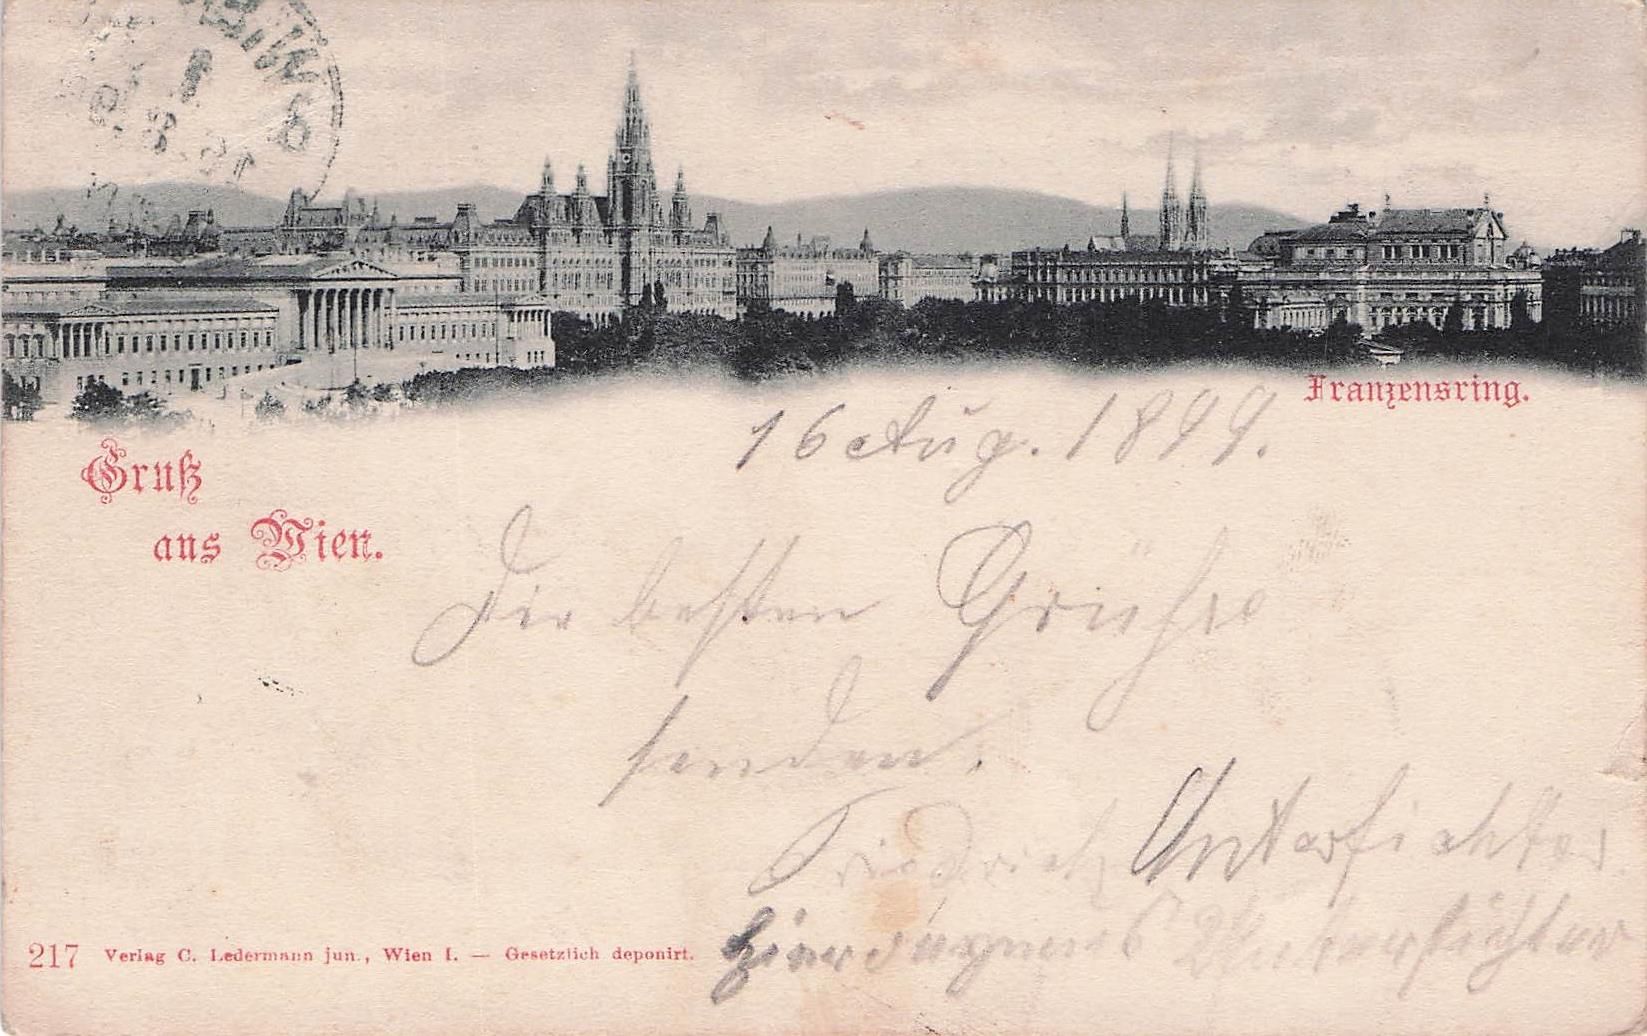 Franzensring.
Gruß
aus Wien.
16 Aug. 1899.
Die besten Grüße
senden.
Friedrich Unterfichter
Unterfichter
217 Verlag C. Ledermann jun., Wien I. — Gesetzlich deponirt.